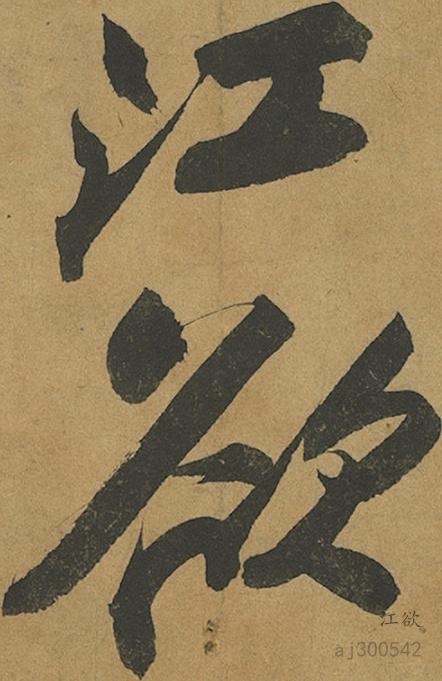 江
欲
江欲
aj300542